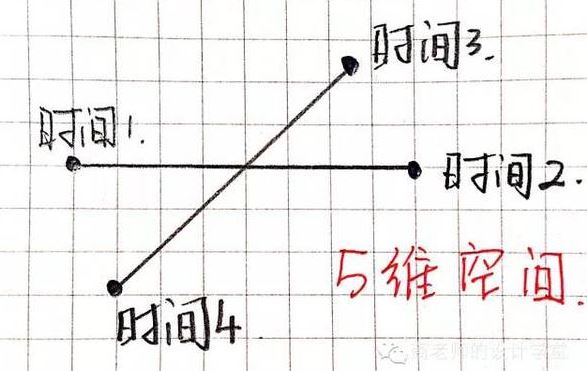 时间3.
时间1.
时间2.
5维空间.
时间4.
高老师的设计学堂